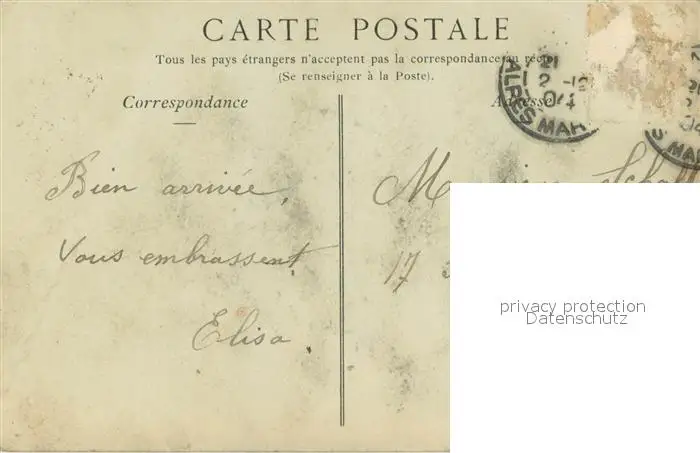 CARTE POSTALE
Tous les pays étrangers n'acceptent pas la correspondance au recto
(Se renseigner à la Poste).
Correspondance
Adresse
21
2 -12
04
ALPES MAR
S MAR
Bien arrivée,
Vous embrassent
Elisa.
M
17
privacy protection
Datenschutz